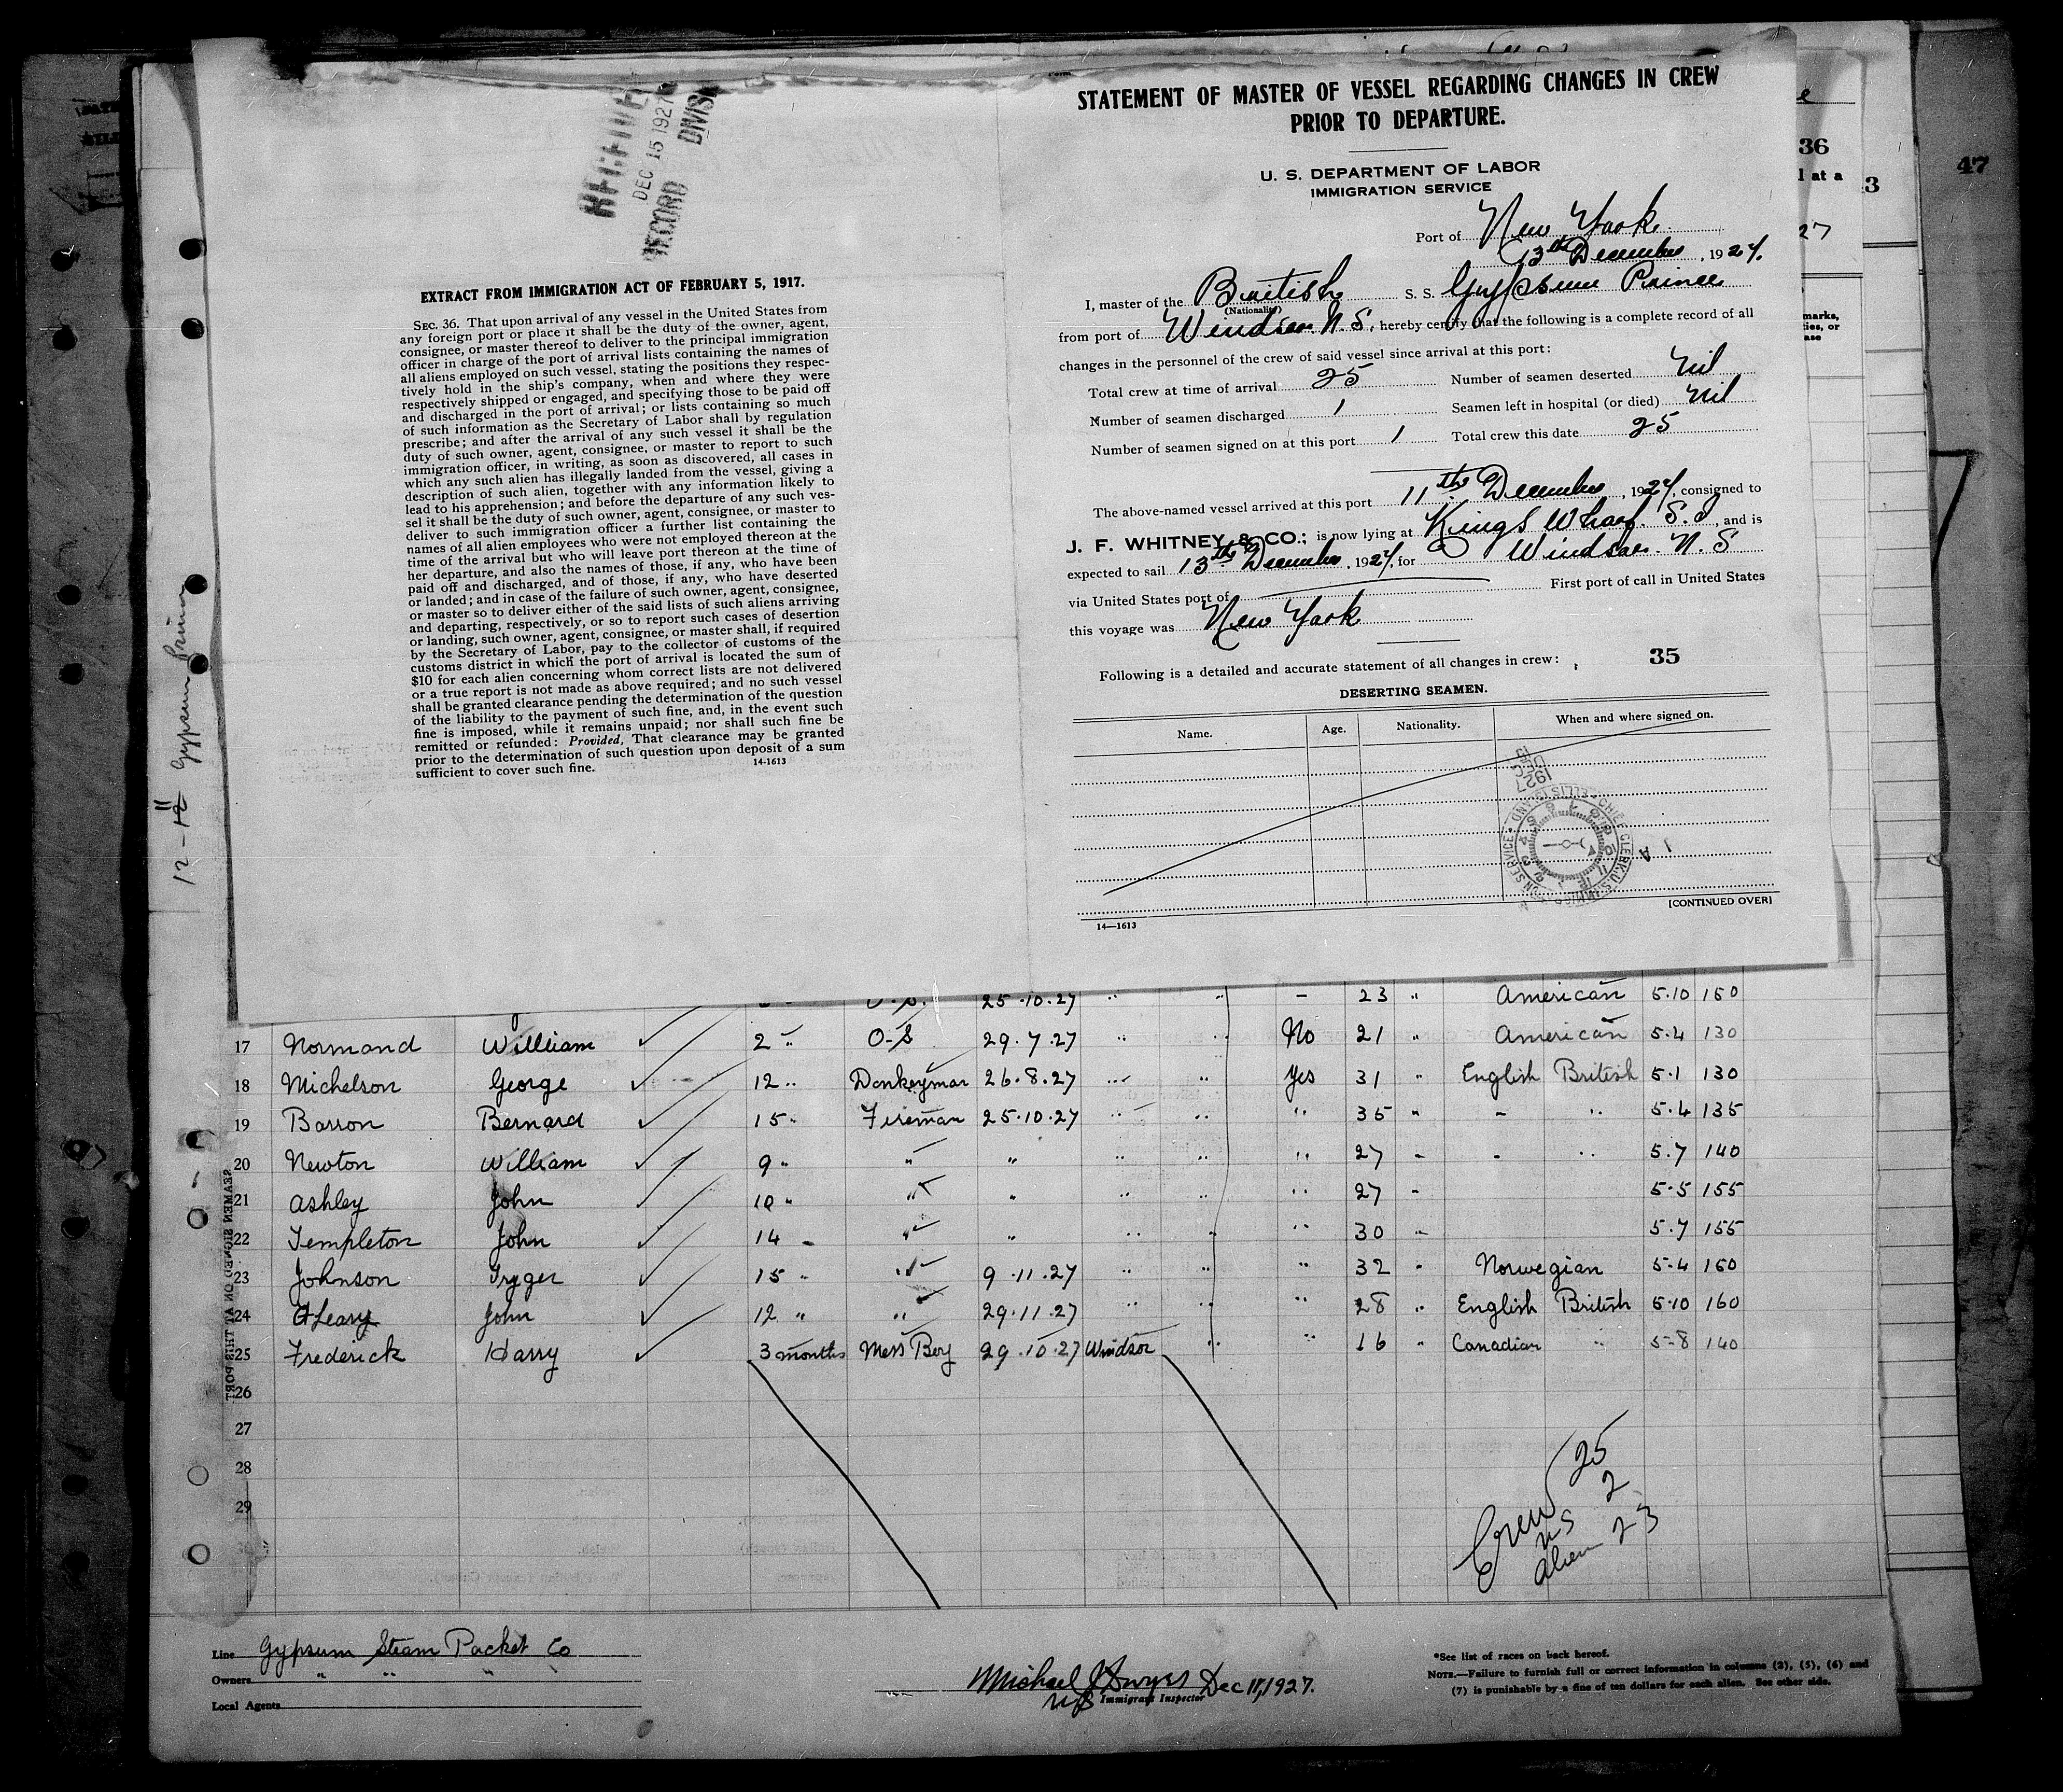 RECEIVED
DEC 15 1927
RECORD DIVIS
EXTRACT FROM IMMIGRATION ACT OF FEBRUARY 5, 1917.
SEC. 36. That upon arrival of any vessel in the United States from
any foreign port or place it shall be the duty of the owner, agent,
consignee, or master thereof to deliver to the principal immigration
officer in charge of the port of arrival lists containing the names of
all aliens employed on such vessel, stating the positions they respec-
tively hold in the ship's company, when and where they were
respectively shipped or engaged, and specifying those to be paid off
and discharged in the port of arrival; or lists containing so much
of such information as the Secretary of Labor shall by regulation
prescribe; and after the arrival of any such vessel it shall be the
duty of such owner, agent, consignee, or master to report to such
immigration officer, in writing, as soon as discovered, all cases in
which any such alien has illegally landed from the vessel, giving a
description of such alien, together with any information likely to
lead to his apprehension; and before the departure of any such ves-
sel it shall be the duty of such owner, agent, consignee, or master to
deliver to such immigration officer a further list containing the
names of all alien employees who were not employed thereon at the
time of the arrival but who will leave port thereon at the time of
her departure, and also the names of those, if any, who have been
paid off and discharged, and of those, if any, who have deserted
or landed; and in case of the failure of such owner, agent, consignee,
or master so to deliver either of the said lists of such aliens arriving
and departing, respectively, or so to report such cases of desertion
or landing, such owner, agent, consignee, or master shall, if required
by the Secretary of Labor, pay to the collector of customs of the
customs district in which the port of arrival is located the sum of
$10 for each alien concerning whom correct lists are not delivered
or a true report is not made as above required; and no such vessel
shall be granted clearance pending the determination of the question
of the liability to the payment of such fine, and, in the event such
fine is imposed, while it remains unpaid; nor shall such fine be
remitted or refunded: Provided, That clearance may be granted
prior to the determination of such question upon deposit of a sum
sufficient to cover such fine.
14-1613
STATEMENT OF MASTER OF VESSEL REGARDING CHANGES IN CREW
PRIOR TO DEPARTURE.
U. S. DEPARTMENT OF LABOR
IMMIGRATION SERVICE
Port of New York
13th December, 1927.
I, master of the British S. S. Gypsum Prince
(Nationality)
from port of Windsor N. S., hereby certify that the following is a complete record of all
changes in the personnel of the crew of said vessel since arrival at this port:
Total crew at time of arrival 25 Number of seamen deserted Nil
Number of seamen discharged 1 Seamen left in hospital (or died) Nil
Number of seamen signed on at this port 1 Total crew this date 25
The above-named vessel arrived at this port 11th December, 1927, consigned to
J. F. WHITNEY & CO.; is now lying at Kings Wharf. S. I, and is
expected to sail 13th December, 1927, for Windsor. N. S
via United States port of First port of call in United States
this voyage was New York
Following is a detailed and accurate statement of all changes in crew: 35
DESERTING SEAMEN.
Name. Age. Nationality. When and where signed on.
[CONTINUED OVER]
14—1613
36
l at a
27
marks,
ties, or
ase
3
47
12 - 11 Gypsum Prince
SEAMEN SIGNED ON AT THIS PORT
O.S. 25.10.27 " " - 23 " American 5.10 150
17 Normand William 2 " O-S 29.7.27 " " No 21 " American 5.4 130
18 Michelson George 12 " Donkeyman 26.8.27 " " Yes 31 " English British 5.1 130
19 Barron Bernard 15 " Fireman 25.10.27 " " " 35 " - " 5.4 135
20 Newton William 9 " " " " " " 27 - - " 5.7 140
21 Ashley John 10 " " " " " " 27 - 5.5 155
22 Templeton John 14 - " " " " " 30 - 5.7 155
23 Johnson Tryger 15 " " 9.11.27 " " " 32 - Norwegian 5-4 160
24 O'Leary John 12 " " 29.11.27 " " " 28 " English British 5.10 160
25 Frederick Harry 3 months Mess Boy 29.10.27 Windsor " " 16 " Canadian " 5-8 140
26
27
28
29
Crew 25
US 2
Alien 23
Line Gypsum Steam Packet Co
Owners " " " "
Local Agents
Michael J Dwyer Dec 11, 1927.
Immigrant Inspector
*See list of races on back hereof.
NOTE.—Failure to furnish full or correct information in columns (2), (5), (6) and
(7) is punishable by a fine of ten dollars for each alien. See other side.